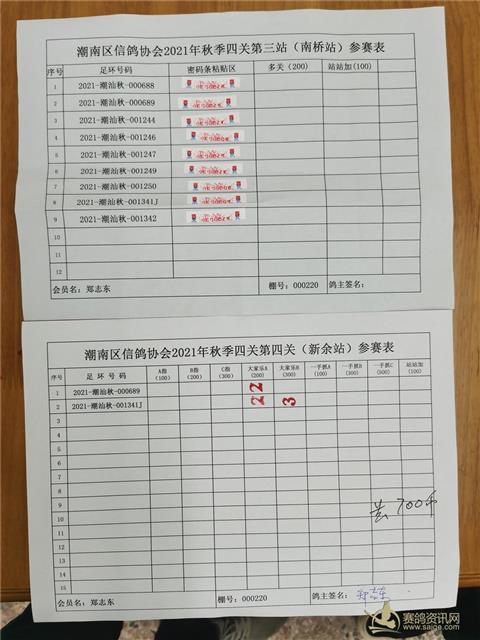 潮南区信鸽协会2021年秋季四关第三站（南桥站）参赛表
序号 足环号码 密码条粘贴区 多关（200） 站站加(100)
1 2021-潮汕秋-000688
2 2021-潮汕秋-000689
3 2021-潮汕秋-001244
4 2021-潮汕秋-001246
5 2021-潮汕秋-001247
6 2021-潮汕秋-001249
7 2021-潮汕秋-001250
8 2021-潮汕秋-001341J
9 2021-潮汕秋-001342
10
11
12
会员名：郑志东 棚号：000220 鸽主签名：
潮南区信鸽协会2021年秋季四关第四关（新余站）参赛表
序号 足环号码 A指（100） B指（200） C指（300） 大家乐A（200） 大家乐B（300） 一手抓A（100） 一手抓B（300） 一手抓C（500） 站站加（100）
1 2021-潮汕秋-000689 2
2 2021-潮汕秋-001341J 2 3
3
4
5
6
7
8
9
10
11
12
13
14
15
共700币
会员名：郑志东 棚号：000220 鸽主签名：
赛鸽资讯网
www.saige.com